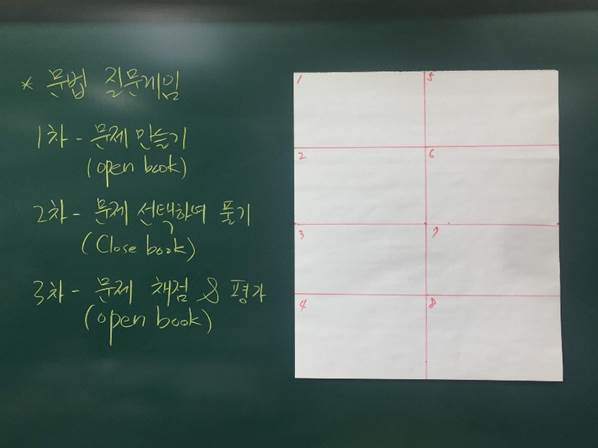 * 문법 질문게임
1차 - 문제 만들기
(open book)
2차 - 문제 선택하여 풀기
(Close book)
3차 - 문제 채점 & 평가
(open book)
1
5
2
6
3
7
4
8